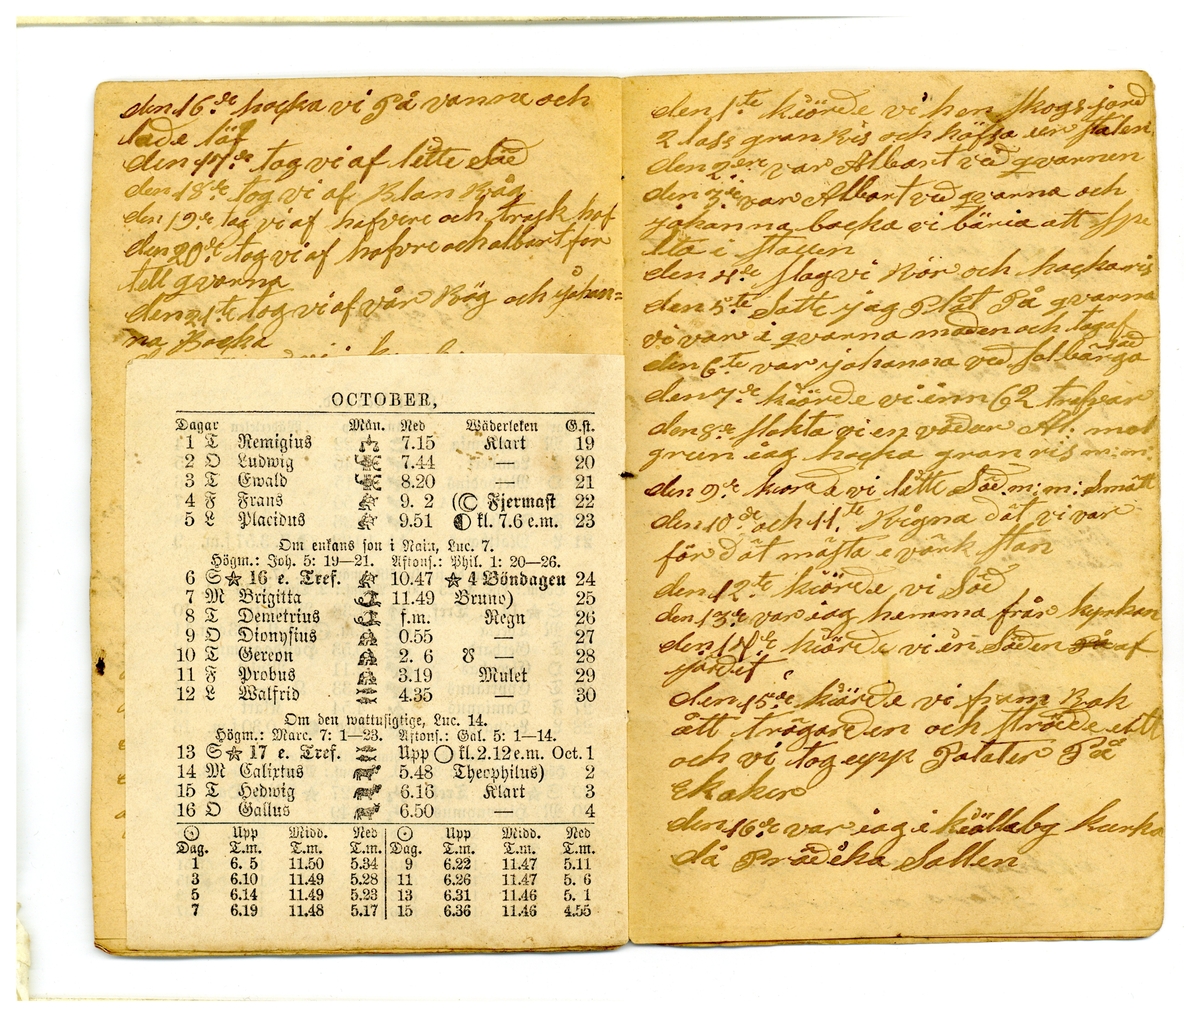 den 16de hacka vi På vanna och
lade löf
den 17de tog vi af lette Säd
den 18de tog vi af Blan Råg
den 19de tog vi af hafvere och trask haf
den 20de tog vi af hafvre och albart for
tell qvarna
den 21te tog vi af vår Råg och Johan=
na Backa
OCTOBER,
Dagar Mån. Ned Wäderleken G.st.
1 T Remigius 7.15 Klart 19
2 O Ludwig 7.44 — 20
3 T Ewald 8.20 — 21
4 F Frans 9. 2 (☾ Fjermast 22
5 L Placidus 9.51 ◐ kl. 7.6 e.m. 23
Om enkans son i Nain, Luc. 7.
Högm.: Joh. 5: 19—21. Aftons.: Phil. 1: 20—26.
6 S ☆ 16 e. Tref. 10.47 ☆ 4 Böndagen 24
7 M Brigitta 11.49 Bruno) 25
8 T Demetrius f.m. Regn 26
9 O Dionysius 0.55 — 27
10 T Gereon 2. 6 ☋ 28
11 F Probus 3.19 Mulet 29
12 L Walfrid 4.35 — 30
Om den wattusigtige, Luc. 14.
Högm.: Marc. 7: 1—23. Aftons.: Gal. 5: 1—14.
13 S ☆ 17 e. Tref. Upp ○ kl. 2.12 e.m. Oct. 1
14 M Calixtus 5.48 Theophilus) 2
15 T Hedwig 6.16 Klart 3
16 O Gallus 6.50 — 4
☉ Upp Midd. Ned ☉ Upp Midd. Ned
Dag. T.m. T.m. T.m. Dag. T.m. T.m. T.m.
1 6. 5 11.50 5.34 9 6.22 11.47 5.11
3 6.10 11.49 5.28 11 6.26 11.47 5. 6
5 6.14 11.49 5.23 13 6.31 11.46 5. 1
7 6.19 11.48 5.17 15 6.36 11.46 4.55
den 1te kiörde vi hem skogs jord
2 lass gran Ris och häfsa
den 2en var Albart ved qvarnen
den 3de var Albart ved qvarna och
johanna backa vi böria att
i stallen
den 4de slag vi Rör och hacka ris
den 5te Satte jag Plåt På qvarna
vi var i qvarna måden och tog af
Säd
den 6te var johanna ved salbärga
den 7de kiörde vi inn 62 trafvar
den 8de slakta vi en vädur
iag hacka gran ris m: m:
den 9de kiorde vi lätte Säd. m: m: Smått
den 10de och 11te Rägna dät vi var
för dät mästa e värk stan
den 12te kiörde vi Säd
den 13de var iag hemma från kyrkan
den 14de kiörde vi en Säden af
järdet
den 15de kiörde vi fram Bak
ått trägarden och ströde ut
och vi tog upp Patater På
Ekaker
den 16de var iag i kiällaby kurka
då Prädika Sallen